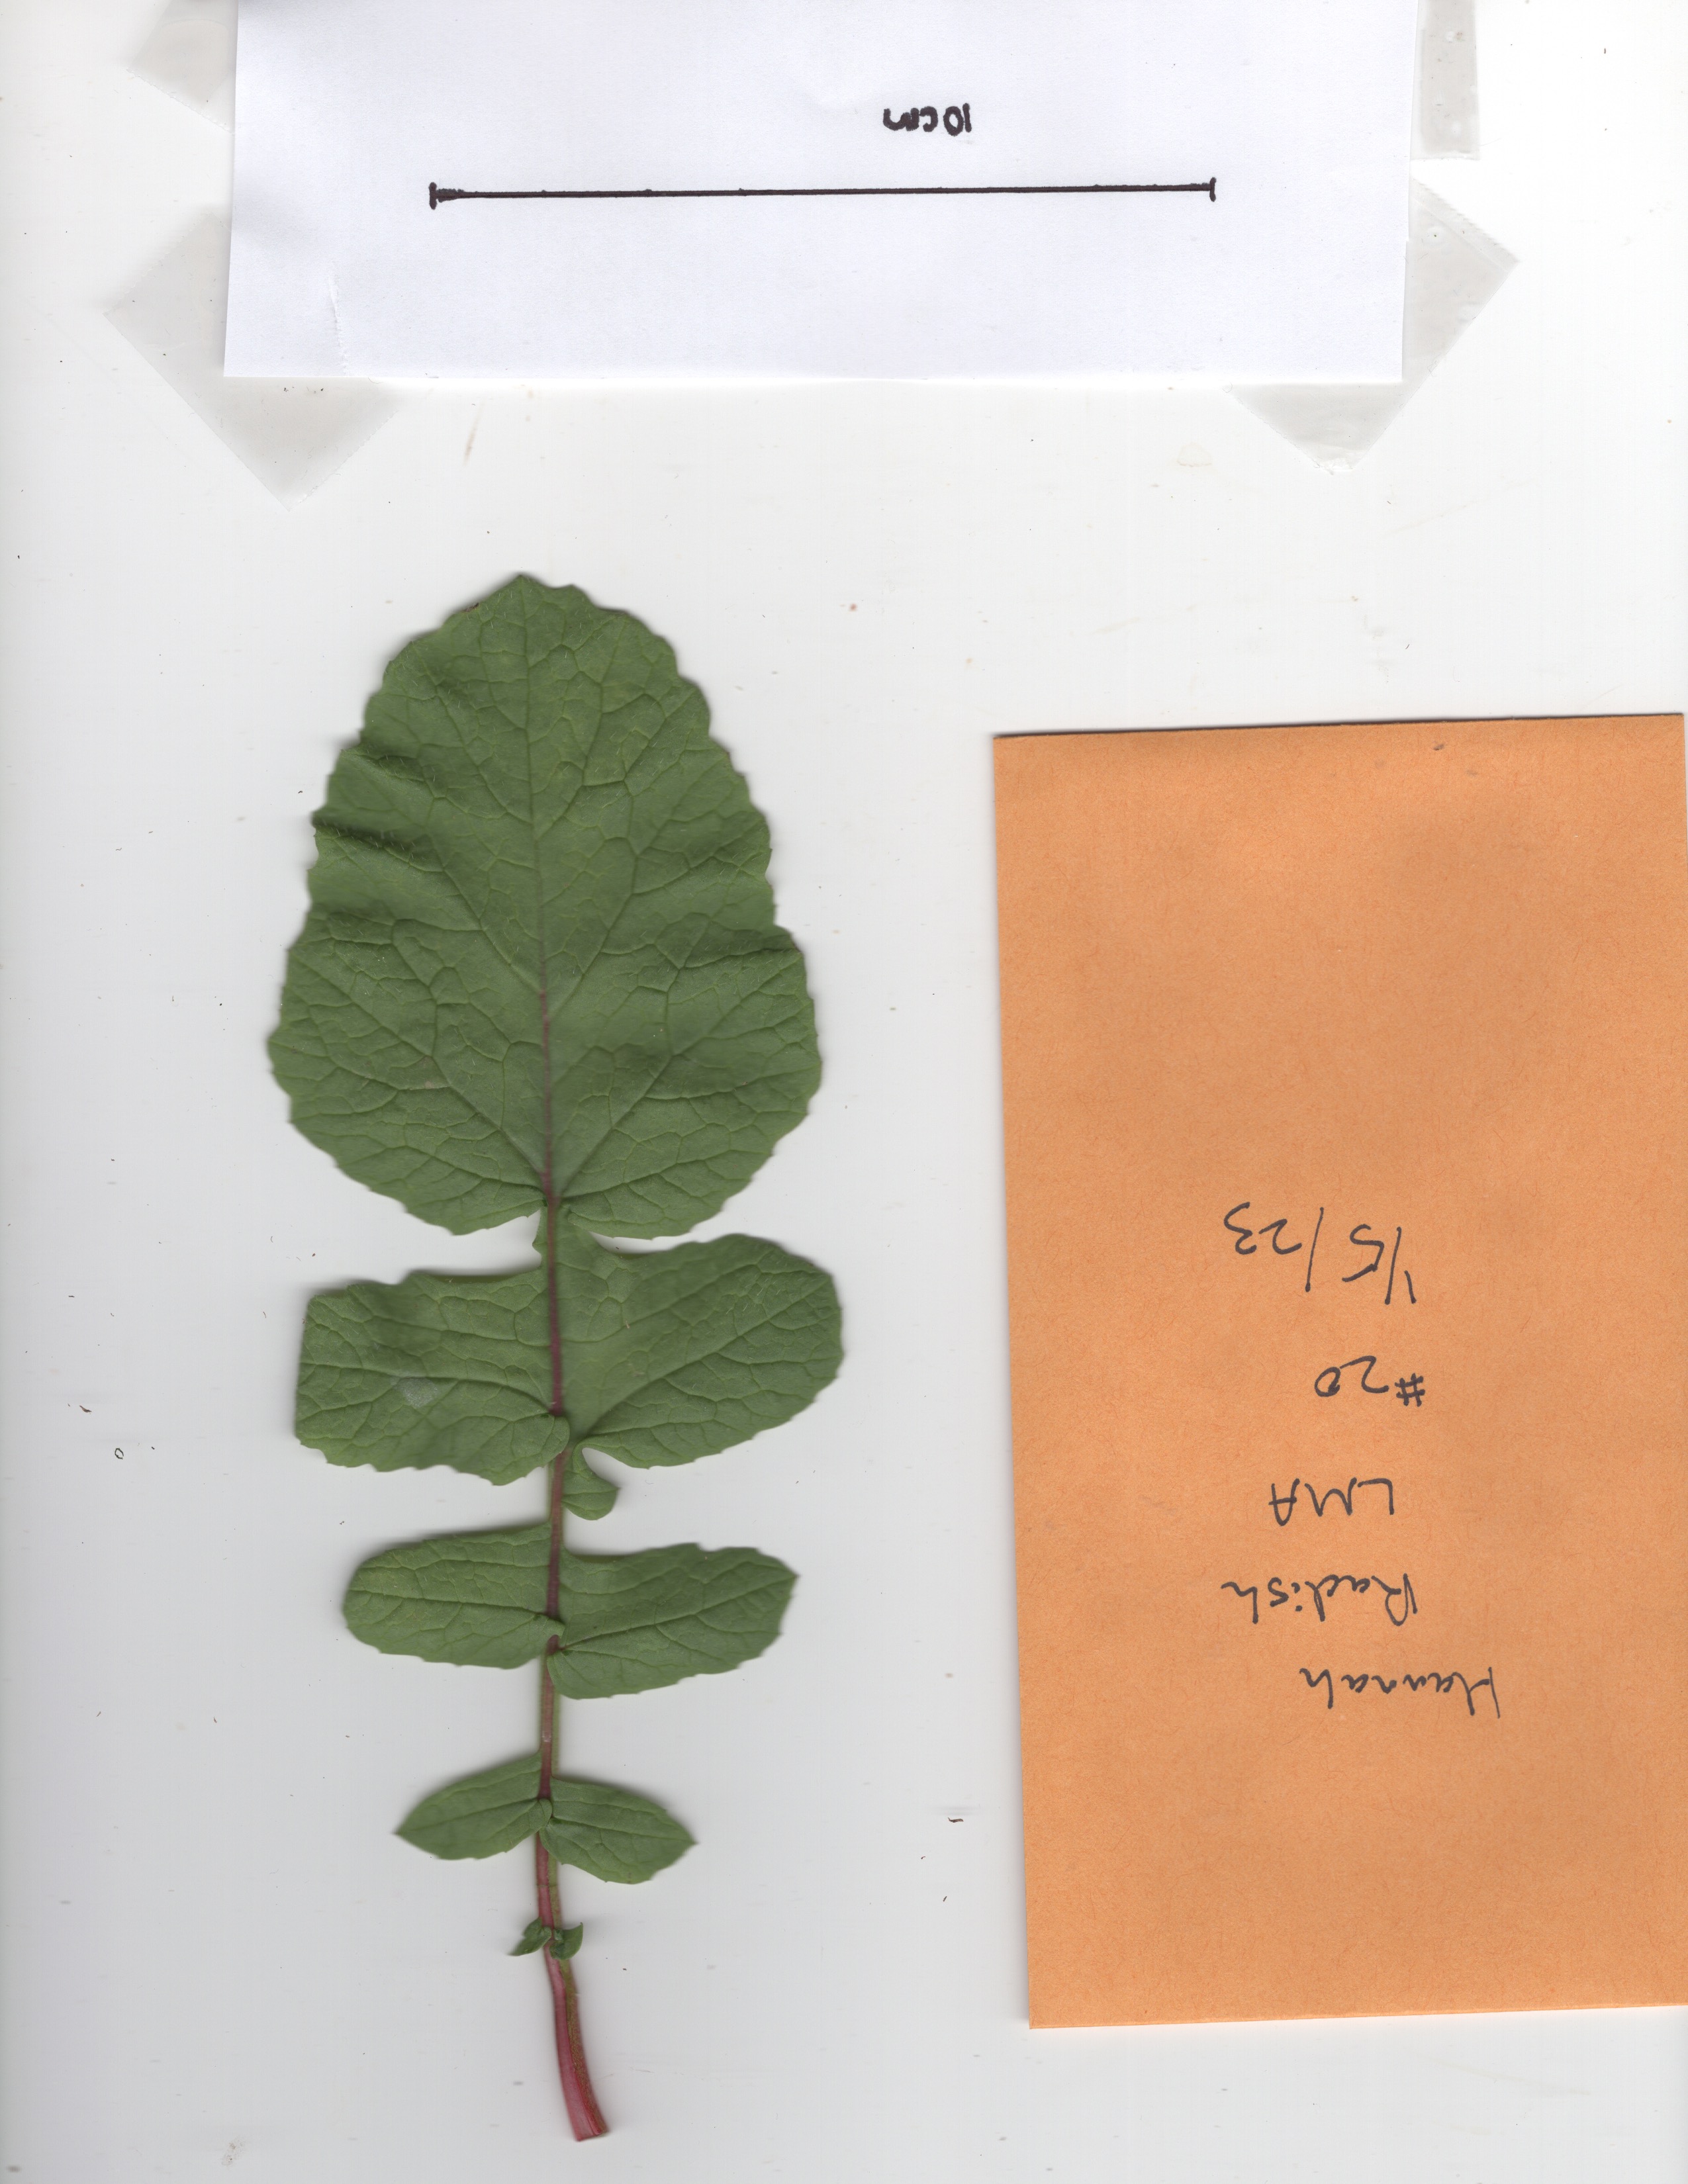 10cm
Hannah
Radish
LMA
#20
1/5/23